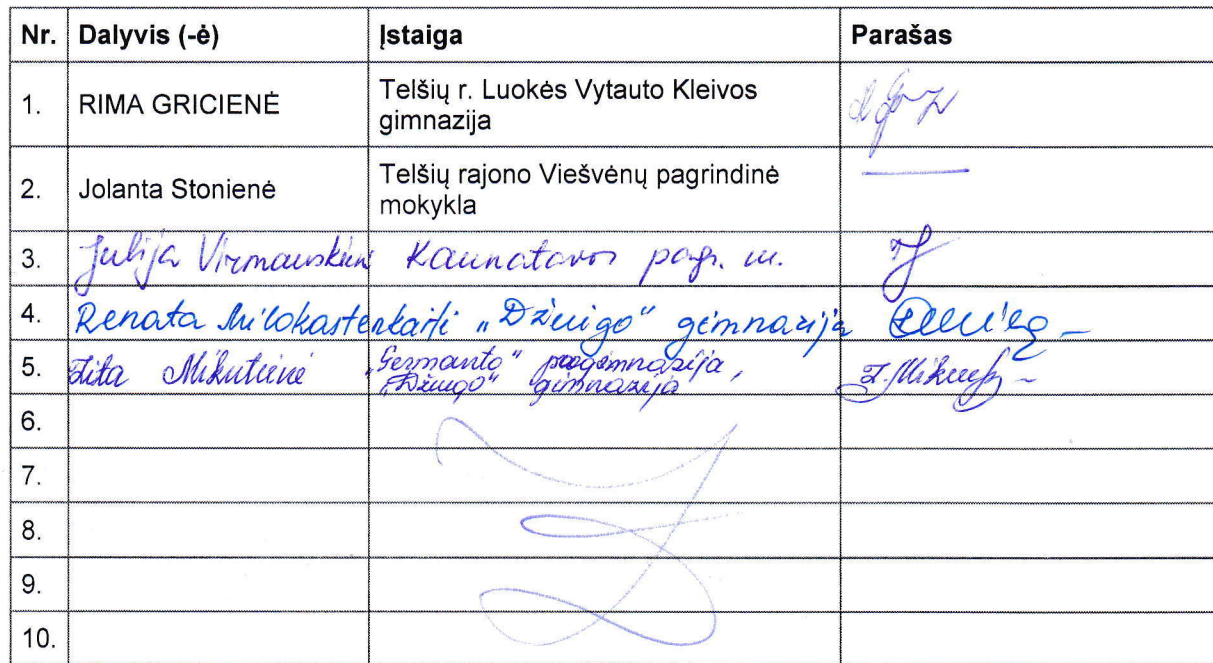 Nr. Dalyvis (-ė) Įstaiga Parašas
1. RIMA GRICIENĖ Telšių r. Luokės Vytauto Kleivos
gimnazija
2. Jolanta Stonienė Telšių rajono Viešvėnų pagrindinė
mokykla
3. Julija Kaunatavos pagr. m.
4. Renata "Džiugo" gimnazija
5. Zita Mikutienė "Germanto" progimnazija,
"Džiugo" gimnazija
6.
7.
8.
9.
10.